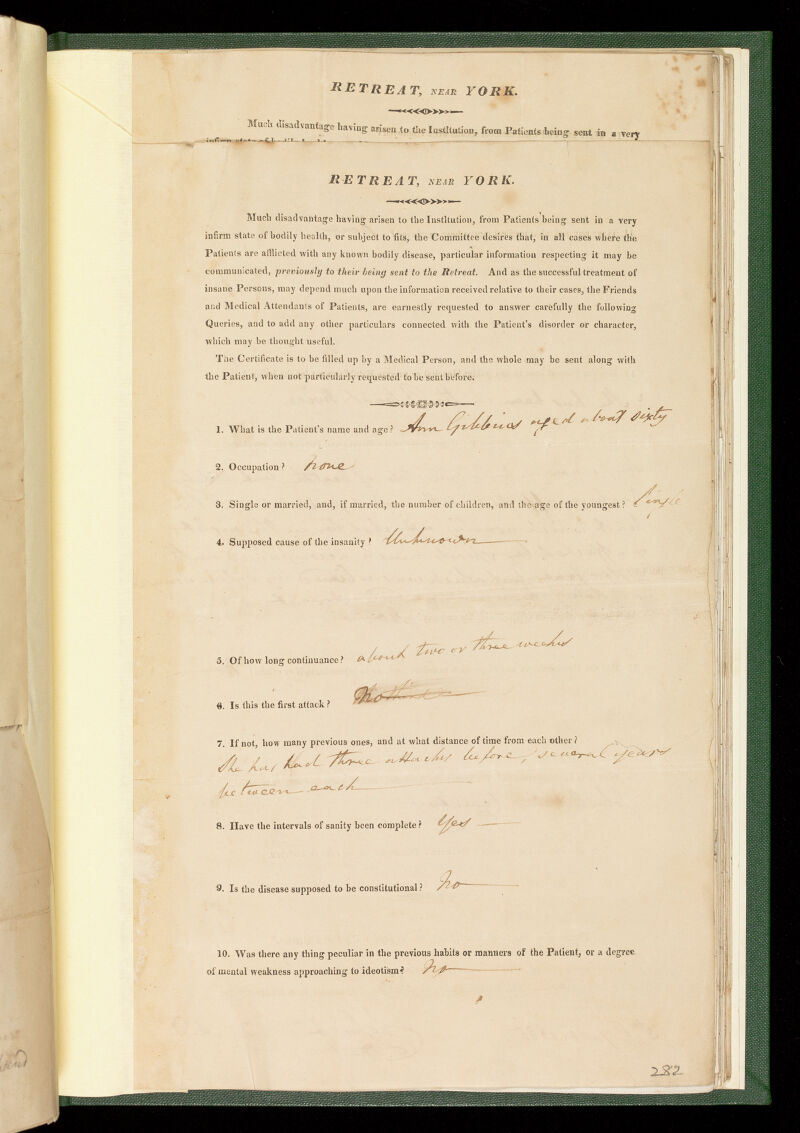 RETREAT, NEAR YORK.
Much disadvantage having arisen to the Institution, from Patients being sent in a very
RETREAT, NEAR YORK.
Much disadvantage having arisen to the Institution, from Patients being sent in a very
infirm state of bodily health, or subject to fits, the Committee desires that, in all cases where the
Patients are afflicted with any known bodily disease, particular information respecting it may be
communicated, previously to their being sent to the Retreat. And as the successful treatment of
insane Persons, may depend much upon the information received relative to their cases, the Friends
and Medical Attendants of Patients, are earnestly requested to answer carefully the following
Queries, and to add any other particulars connected with the Patient's disorder or character,
which may be thought useful.
The Certificate is to be filled up by a Medical Person, and the whole may be sent along with
the Patient, when not particularly requested to be sent before.
1. What is the Patient's name and age? Ann Gibbins aged about sixty
2. Occupation? none
3. Single or married, and, if married, the number of children, and the age of the youngest? Single
4. Supposed cause of the insanity? Unknown
5. Of how long continuance? about two or three weeks
6. Is this the first attack?
7. If not, how many previous ones, and at what distance of time from each other?
She has had three attacks before, several years
between each
8. Have the intervals of sanity been complete? Yes
9. Is the disease supposed to be constitutional? No
10. Was there any thing peculiar in the previous habits or manners of the Patient, or a degree
of mental weakness approaching to ideotism? No
282